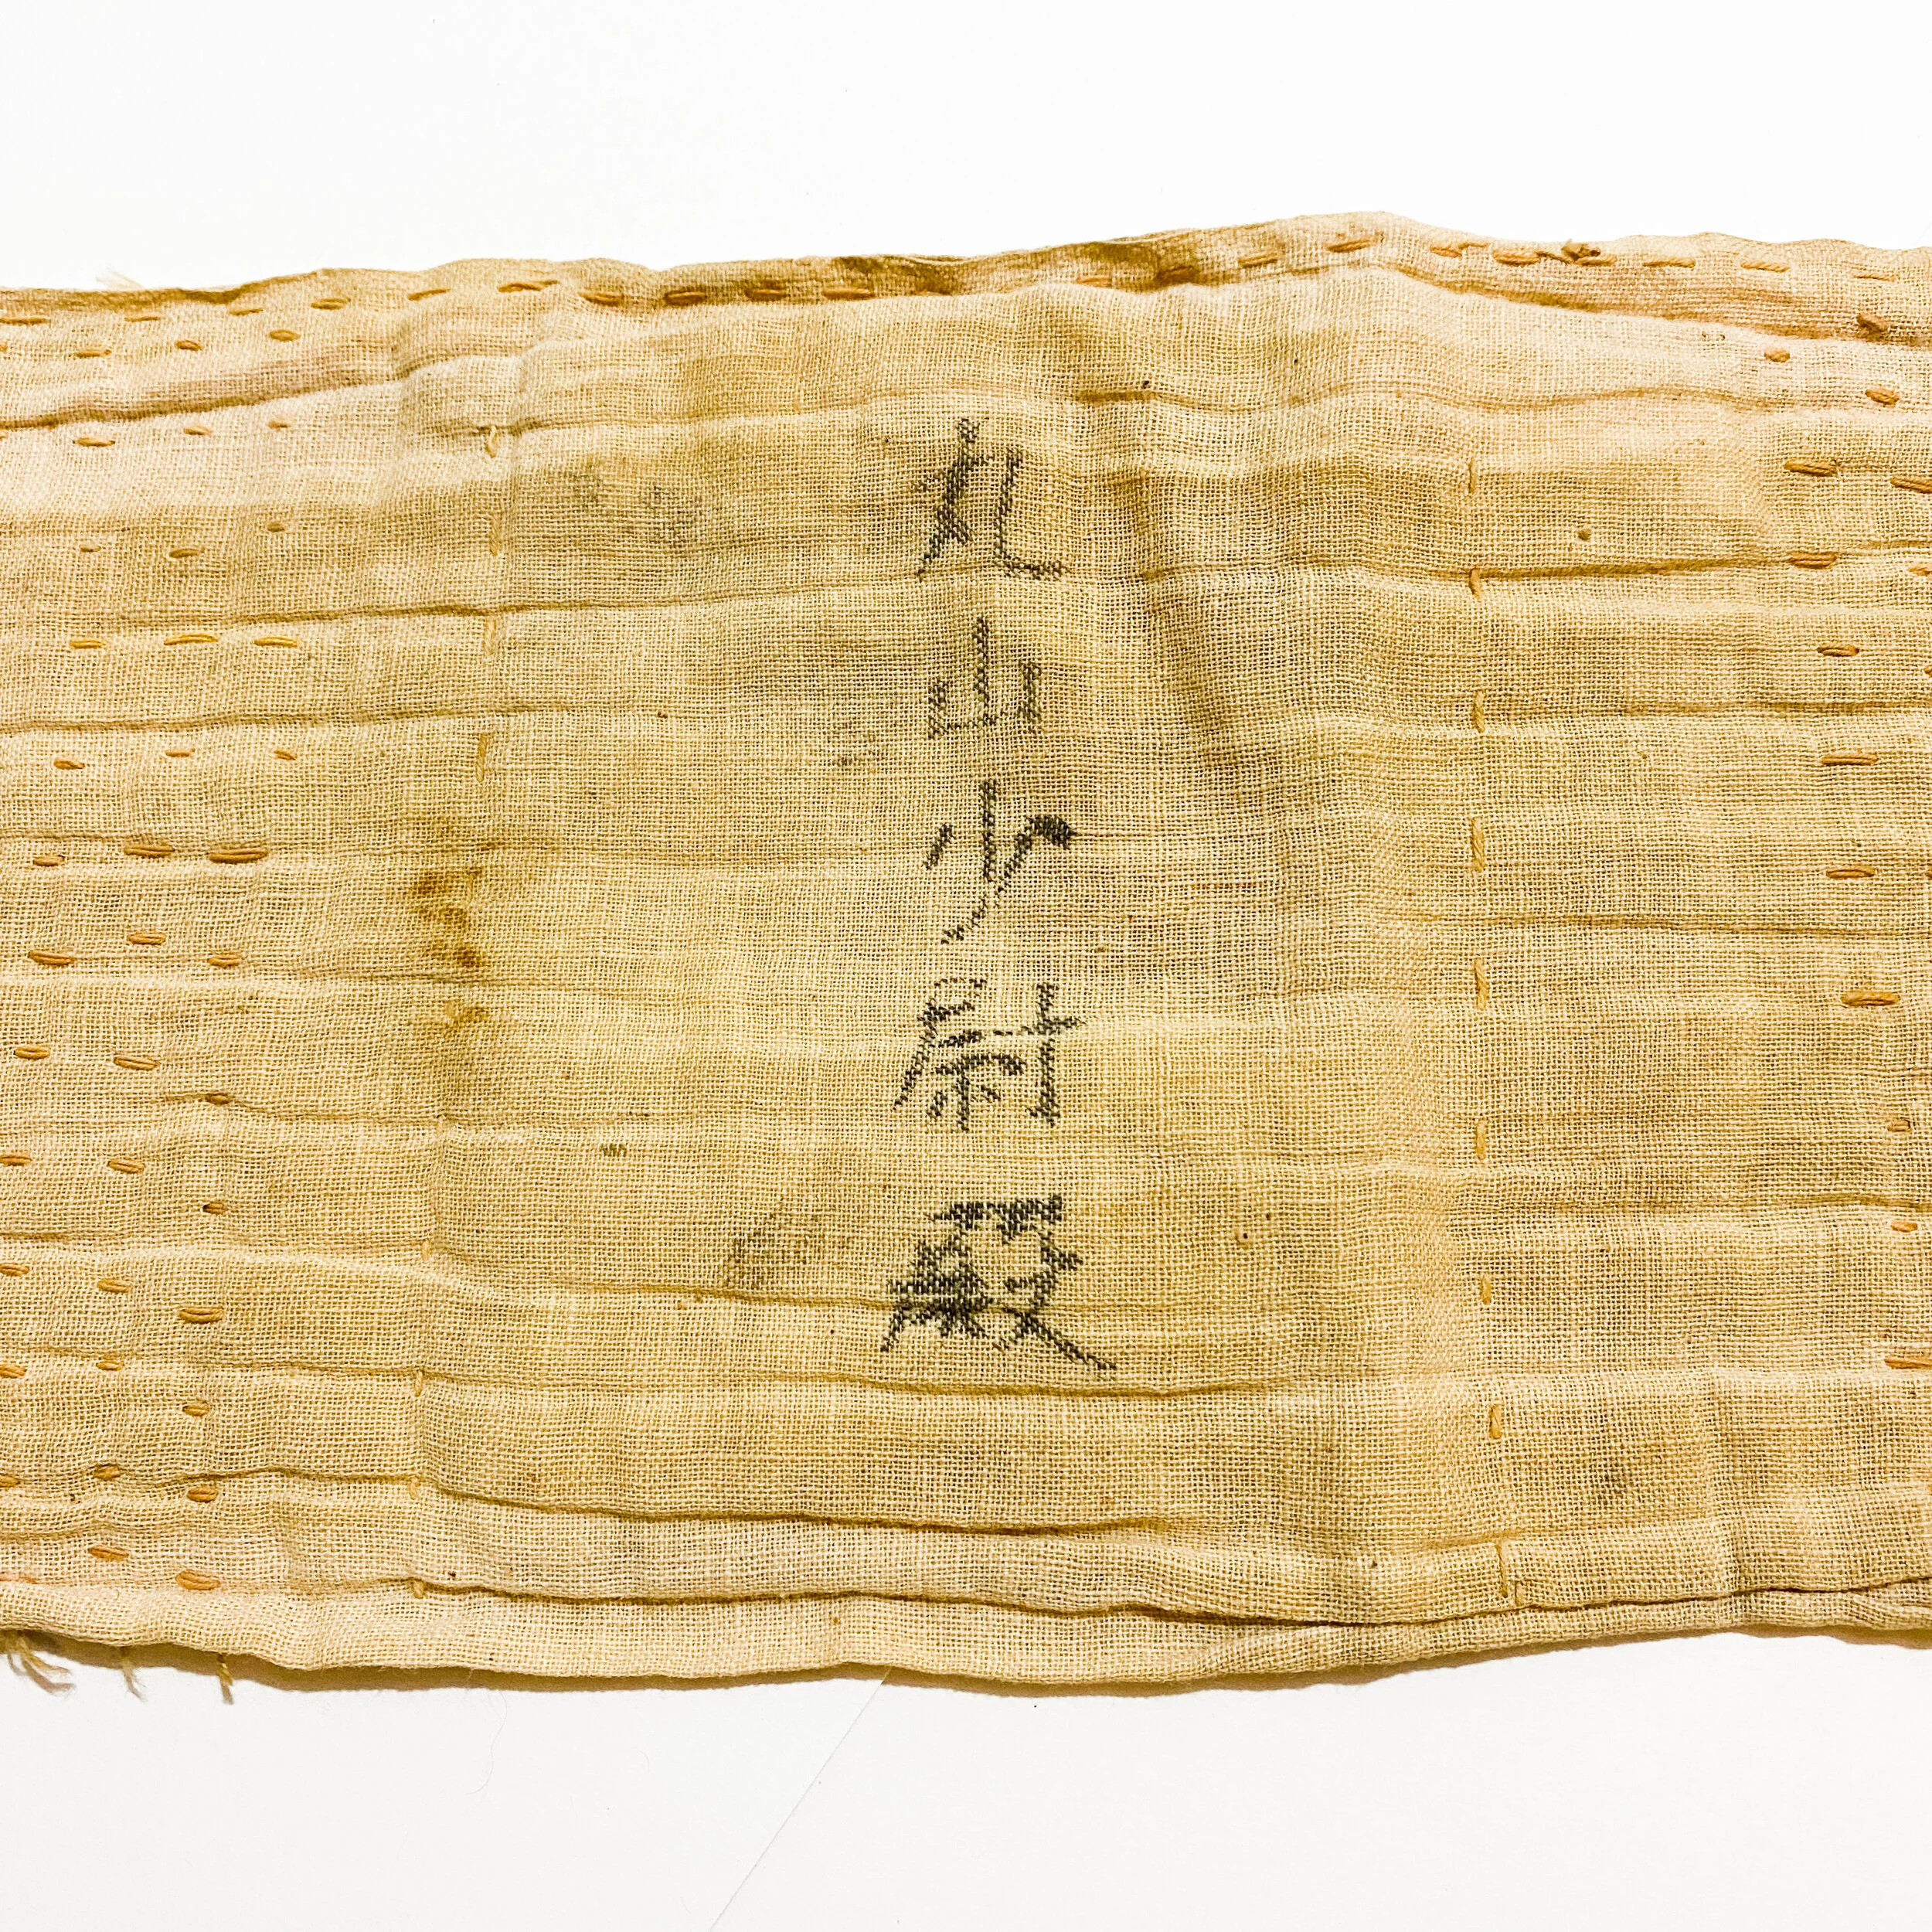 丸山少尉殿